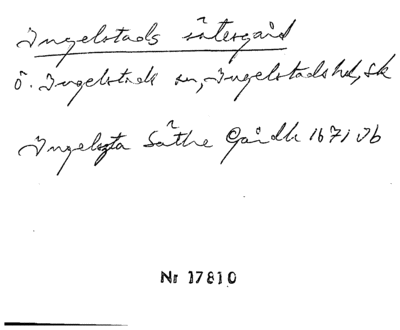 Ingelstads sätesgård
Ö. Ingelstads sn, Ingelstads hd, Sk
Ingelsta Säthe Gårdh 1671 Jb
Nr 17810